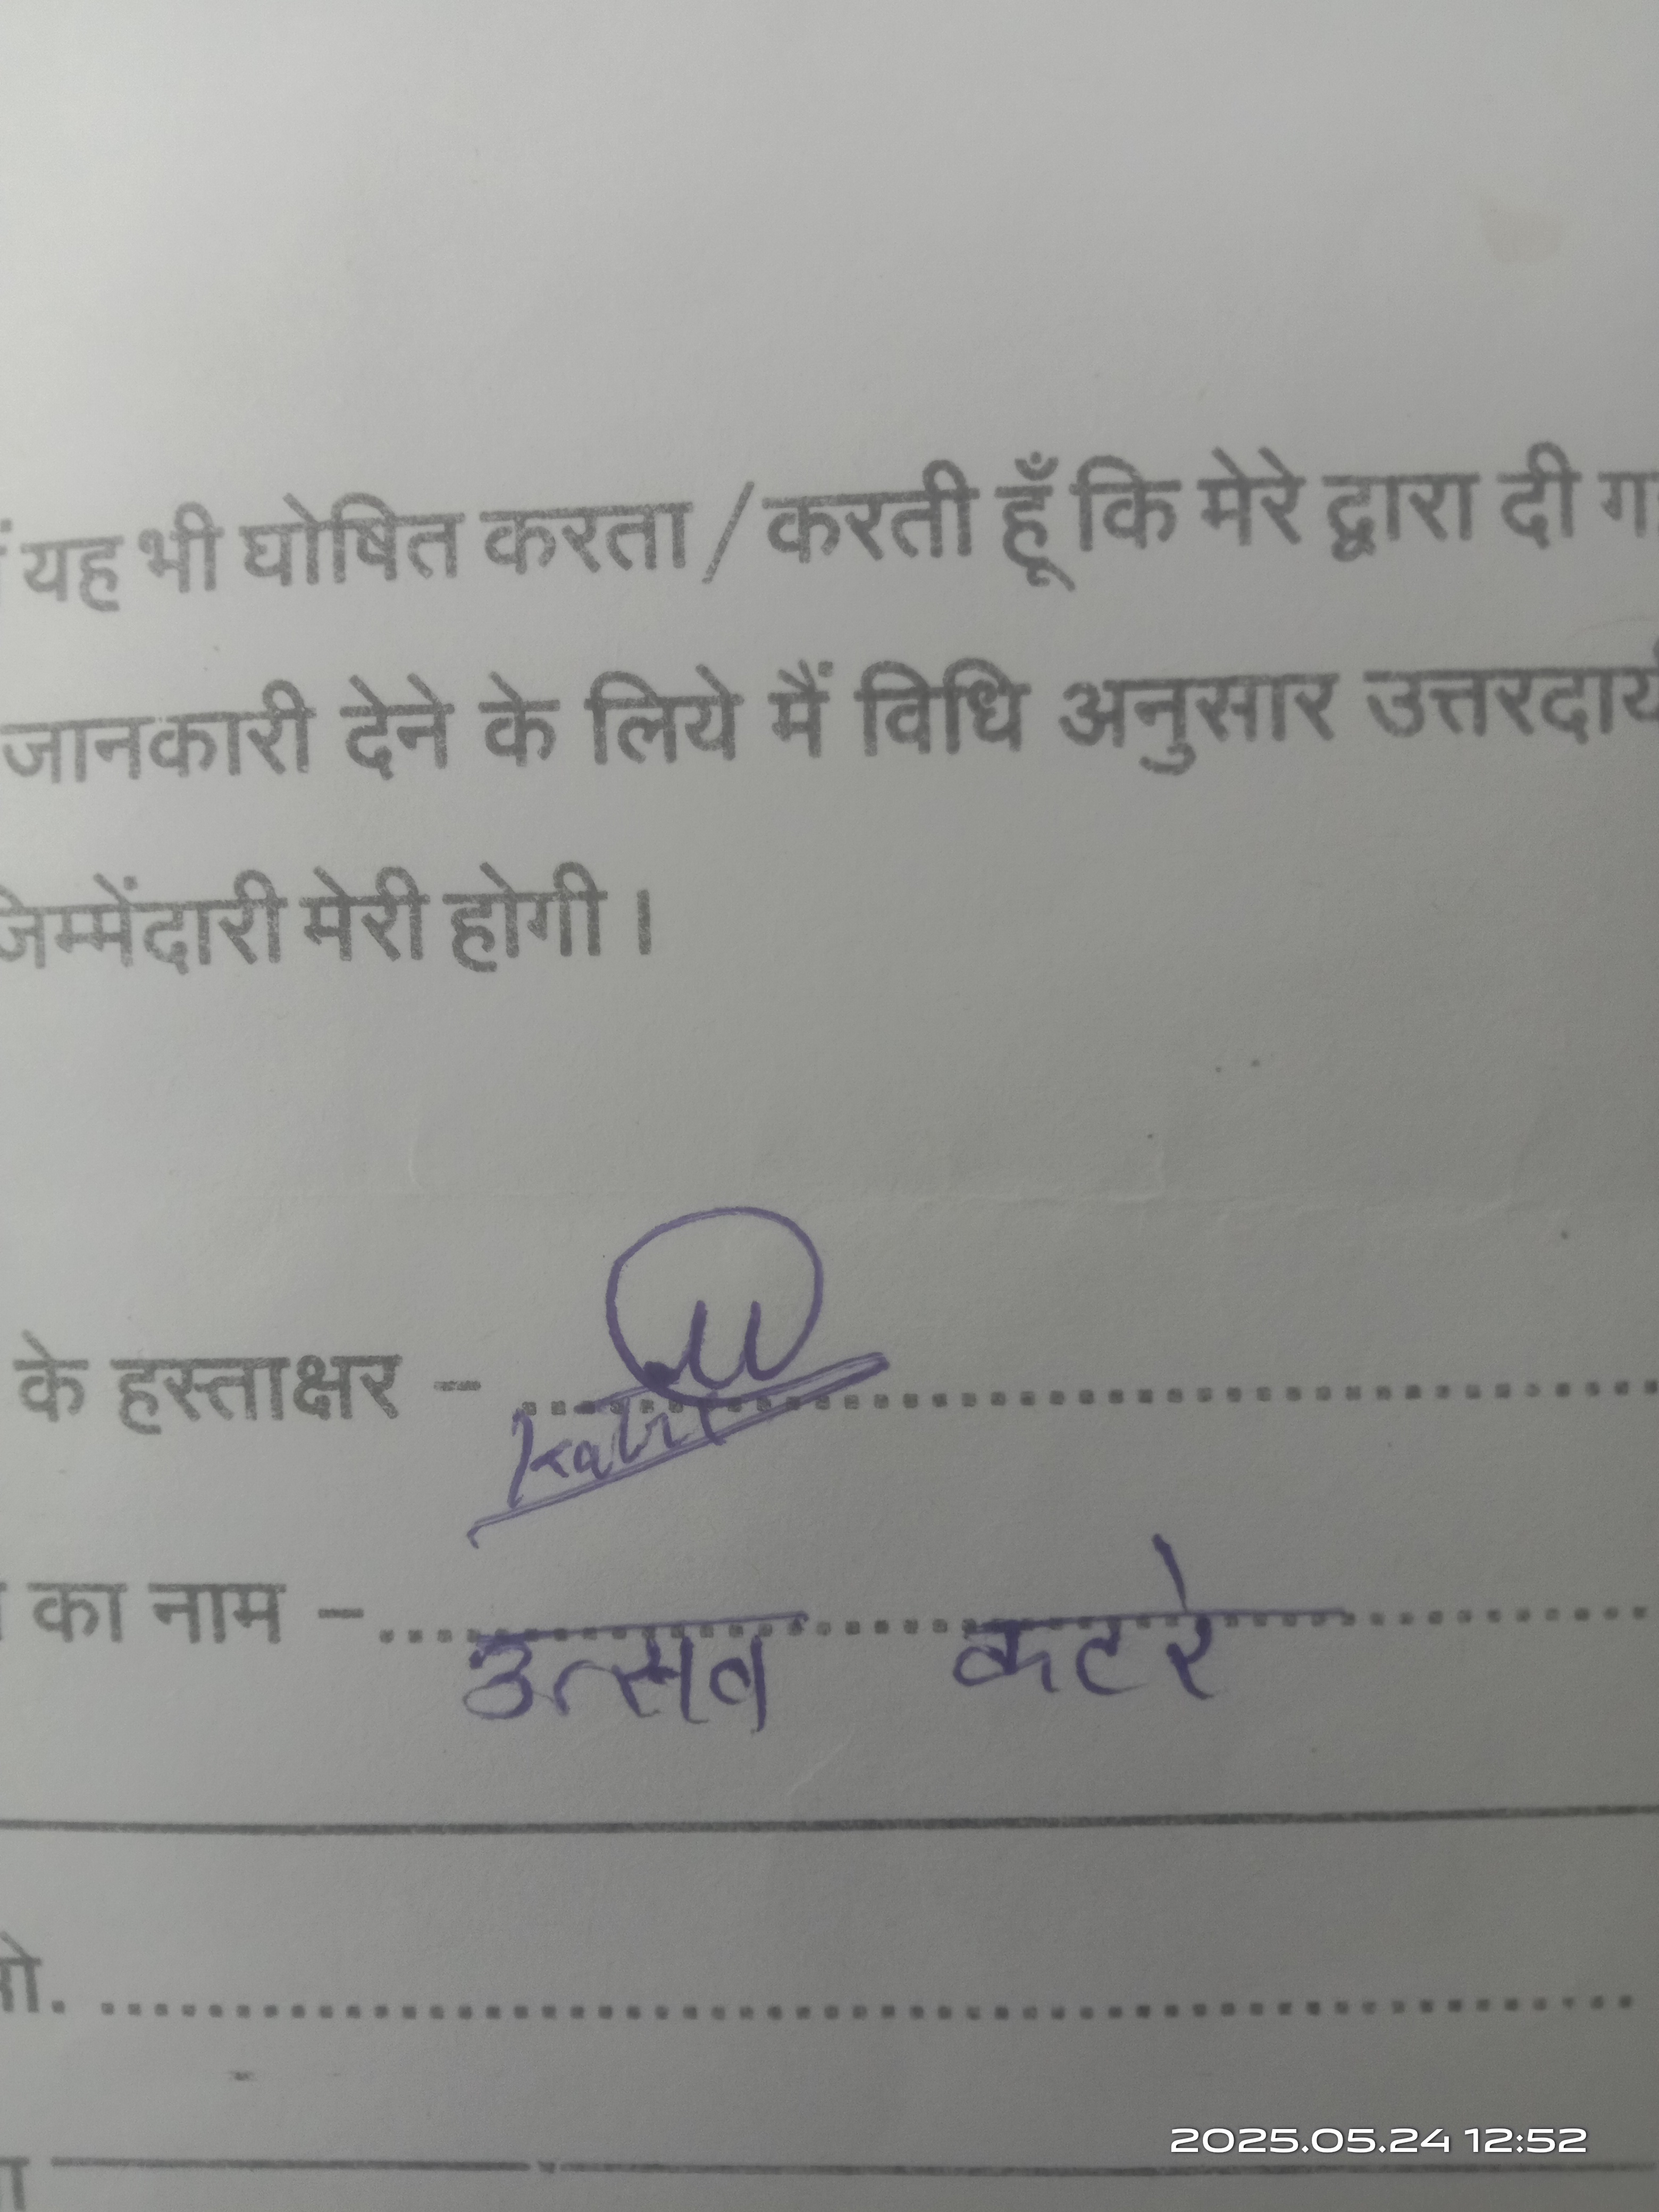 यह भी घोषित करता / करती हूँ कि मेरे द्वारा दी
जानकारी देने के लिये मैं विधि अनुसार
जिम्मेंदारी मेरी होगी ।
के हस्ताक्षर -
का नाम - उत्सव कटरे
2025.05.24 12:52